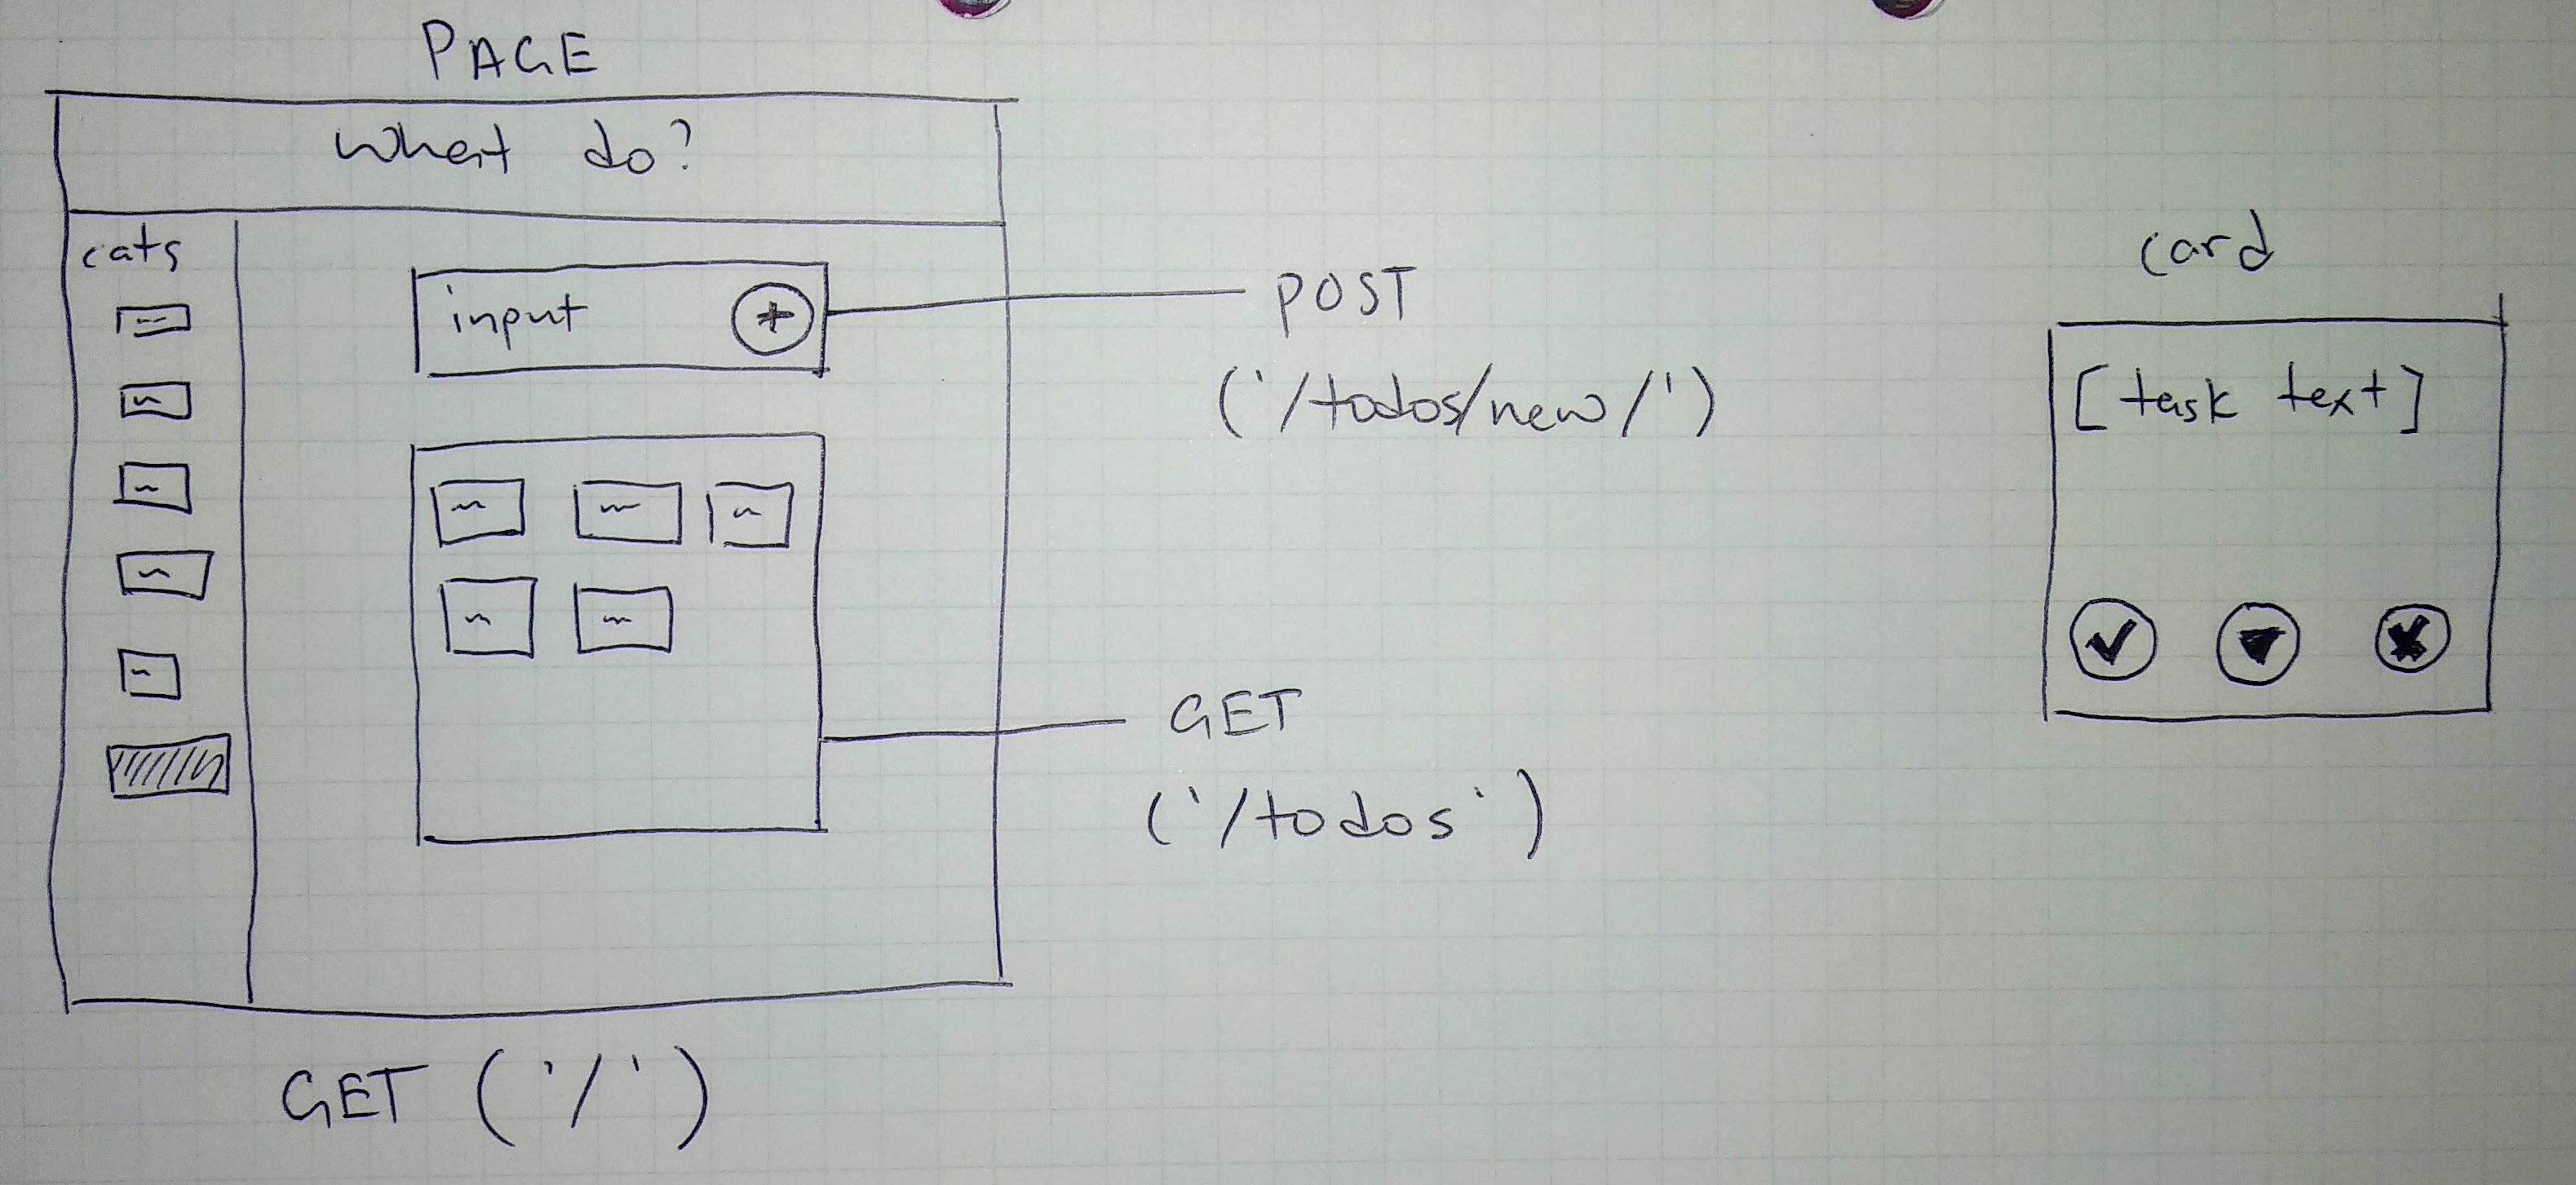 PAGE
What do?
cats
input +
POST
('/todos/new/')
GET
('/todos')
GET ('/')
card
[task text]